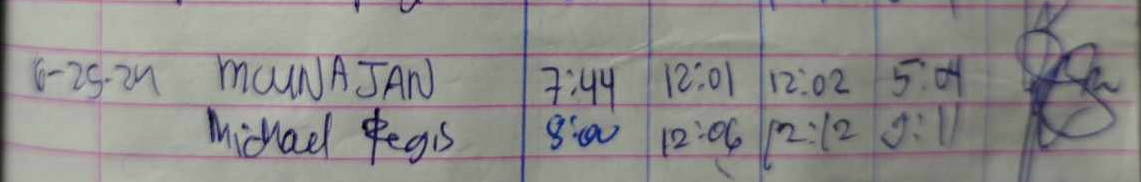 6-25-24 MCUNAJAN 7:44 12:01 12:02 5:04
Michael Regis 8:00 12:06 12:12